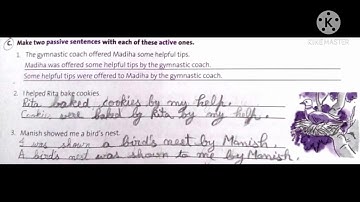 C. Make two passive sentences with each of these active ones.
1. The gymnastic coach offered Madiha some helpful tips.
Madiha was offered some helpful tips by the gymnastic coach.
Some helpful tips were offered to Madiha by the gymnastic coach.
2. I helped Rita bake cookies.
Rita baked cookies by my help.
Cookies were baked by Rita by my help.
3. Manish showed me a bird's nest.
I was shown a bird's nest by Manish.
A bird's nest was shown to me by Manish.
KINEMASTER